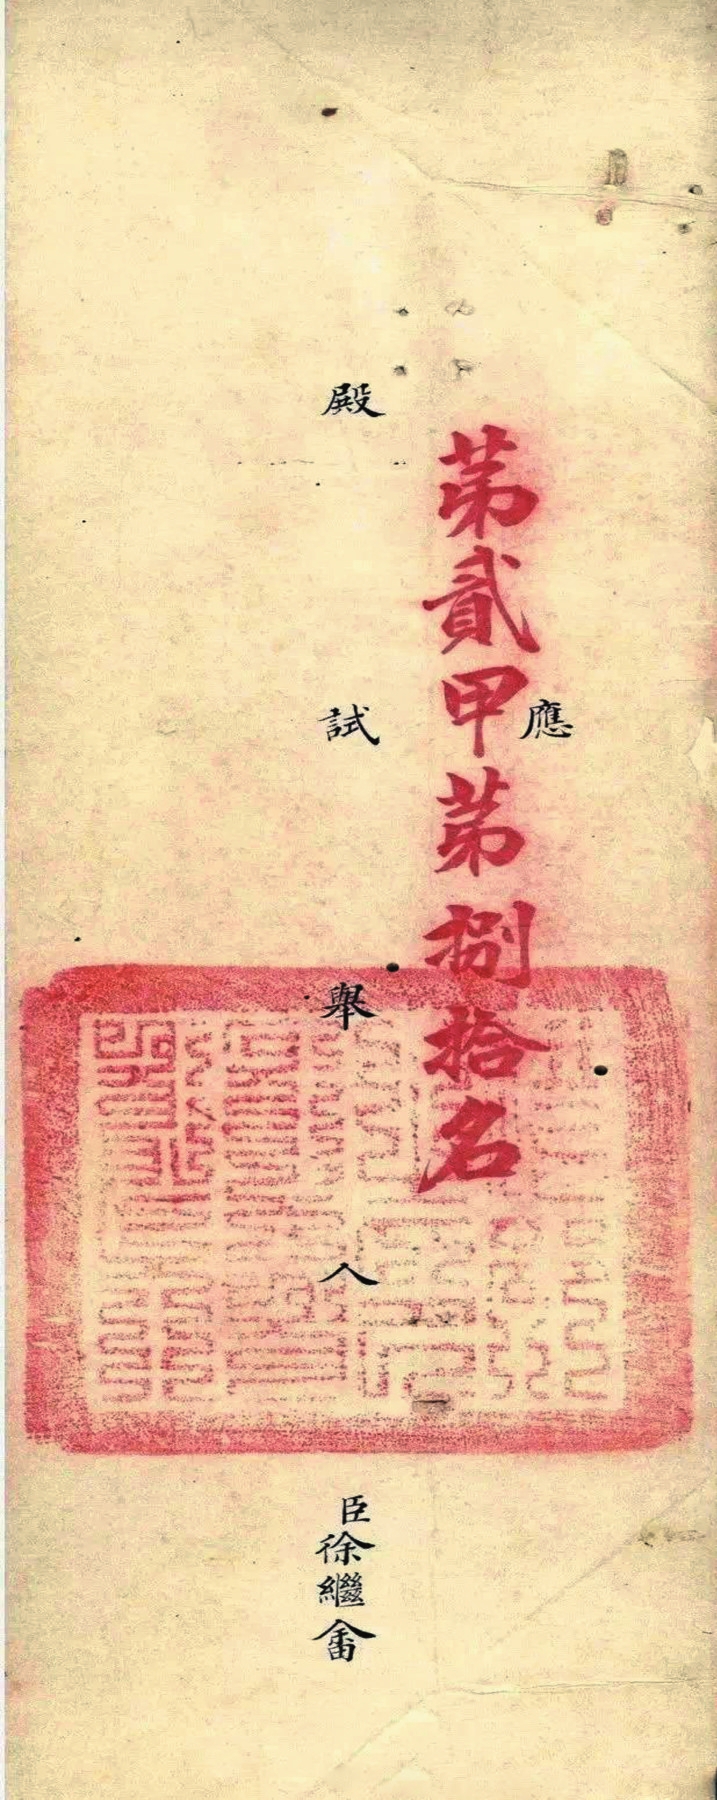 應
第貳甲第捌拾名
殿試舉人臣徐繼畬